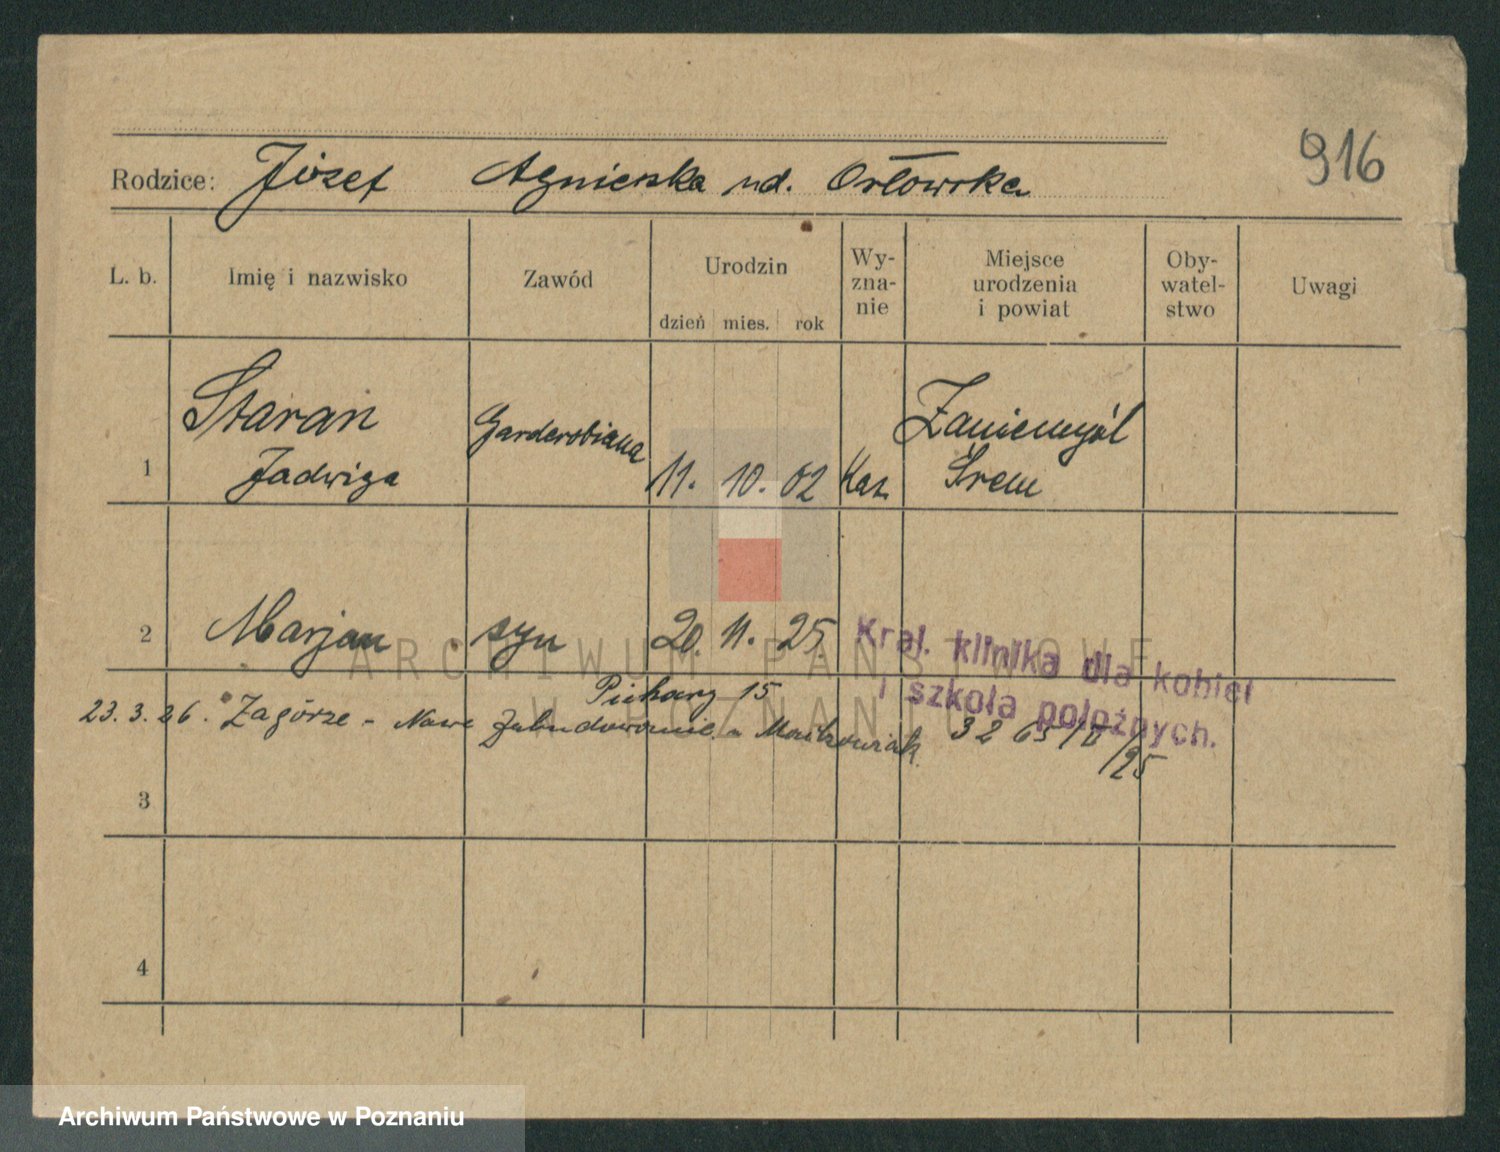 916
Rodzice: Józef Agnieszka ud. Orłowska
L. b. Imię i nazwisko Zawód Urodzin dzień mies. rok Wy-zna-nie Miejsce urodzenia i powiat Oby-watel-stwo Uwagi
1 Staran Jadwiga Garderobiana 11. 10. 02 Kat. Zaniemyśl Śrem
2 Marjan syn 20. 11. 25. Kraj. klinika dla kobiet
i szkoła położnych.
Piekary 15
23. 3. 26. Zagórze - Nowe Zabudowanie - Maćkowiak
/25
3
4
ARCHIWUM PAŃSTWOWE
W POZNANIU
Archiwum Państwowe w Poznaniu